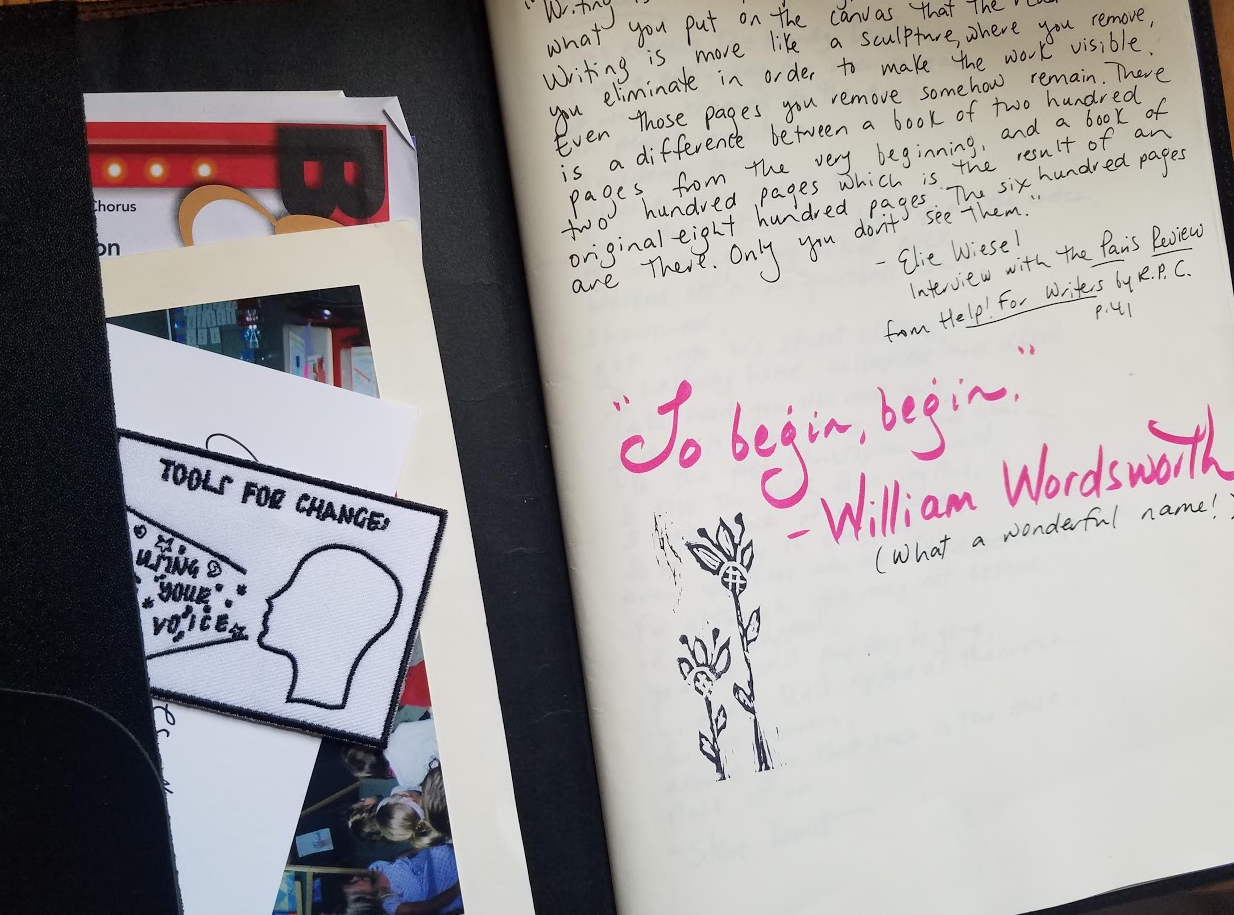 B
Chorus
on
TOOLS FOR CHANGE:
USING
YOUR
VOICE
"Writing is
what you put on the canvas that the
Writing is more like a sculpture, where you remove,
you eliminate in order to make the work visible.
Even those pages you remove somehow remain. There
is a difference between a book of two hundred
pages from the very beginning, and a book of
two hundred pages which is the result of an
original eight hundred pages. The six hundred pages
are there. Only you don't see them."
- Elie Wiesel
Interview with the Paris Review
from Help! For Writers by R.P.C.
p.41
"To begin, begin."
- William Wordsworth
(What a wonderful name!)